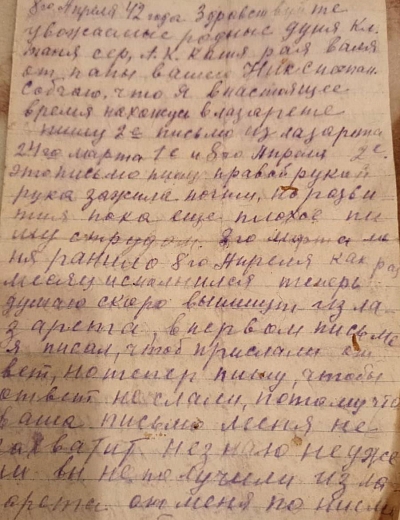 8го Апреля 42 года. Здравствуйте
уважаемые родные дуня Кл.
таня сер, Л.К. катя рая валя
от папы вашего
Собчаю, что я внастоящее
время нахожусь влазарете
пишу 2е письмо из лазарета
24го марта 1е и 8го Апреля 2е.
это письмо пишу правой рукай
рука зажила почти, но разви
тия пока еще плохое пи
шу струдом. 8го марта ме
ня ранило 8го Апреля как раз
месяц исполнился теперь
думаю скоро выпишут из ла
зарета, в первом письме
я писал, чтоб прислали от
вет, но тепер пишу, чтобы
ответ не слали, потому что
ваша письмо меня не
захватит незнаю неуже
ли вы не получили из ла
зарета от меня по